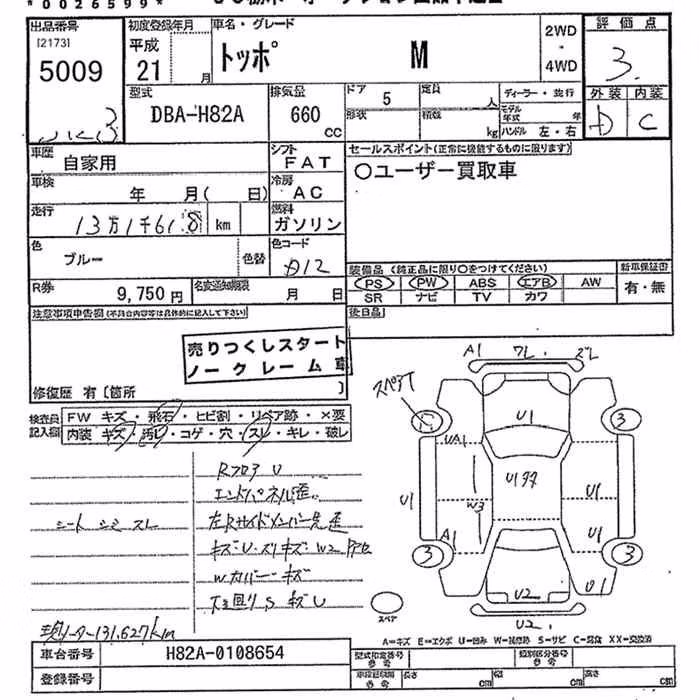 *0026599*
出品番号
[2173]
5009
初度登録年月
平成
21 月
車名・グレード
トッポ M
2WD
・
4WD
評価点
3.
外装 内装
D C
型式
DBA-H82A
排気量
660
CC
ドア 5
形状
定員 人
積載 kg
ディーラー・並行
モデル年式 年
ハンドル 左・右
車歴
自家用
シフト
FAT
車検
年 月( 日)
冷房
AC
走行
13万1千61 km
燃料
ガソリン
色
ブルー
色替
色コード
D12
R券
9,750 円
名変通知期限
月 日
セールスポイント(正常に機能するものに限ります)
○ユーザー買取車
装備品 (純正品に限り○をつけてください)
PS PW ABS エアB AW
SR ナビ TV カワ
新車保証書
有・無
後日品
注意事項申告欄(不具合内容等は具体的に記入して下さい)
売りつくしスタート
ノークレーム車
修復歴 有 [箇所 ]
検査員
記入欄
FW キズ・飛石・ヒビ割・リペア跡・×要
内装 キズ・汚レ・コゲ・穴・スレ・キレ・破レ
Rフロア U
エンドパネル歪
シート シミ スレ
左Rサイドメンバー先歪
キズ・U・スリキズ・W2
Wカバー・キズ
下廻り S キズ U
現メーター131,627km
A1 7L 2L
スペアT
3
UA1 U1
U1 W3 U1
A1 U1
3 3
U2 U1
U2
スペア
A=キズ E=エクボ U=凹み W=補修跡 S=サビ C=腐食 XX=交換済
車台番号 H82A-0108654
登録番号
型式指定番号
参考
類別区分番号
参考
長さ cm
幅 cm
高さ cm